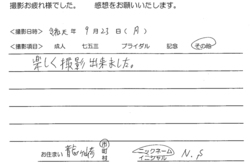 撮影お疲れ様でした。 感想をお願いいたします。
<撮影日時> 年 9月23日 (月)
<撮影項目> 成人 七五三 ブライダル 記念 その他
楽しく撮影出来ました。
お住まい 市 町 村 ニックネーム イニシャル N.S